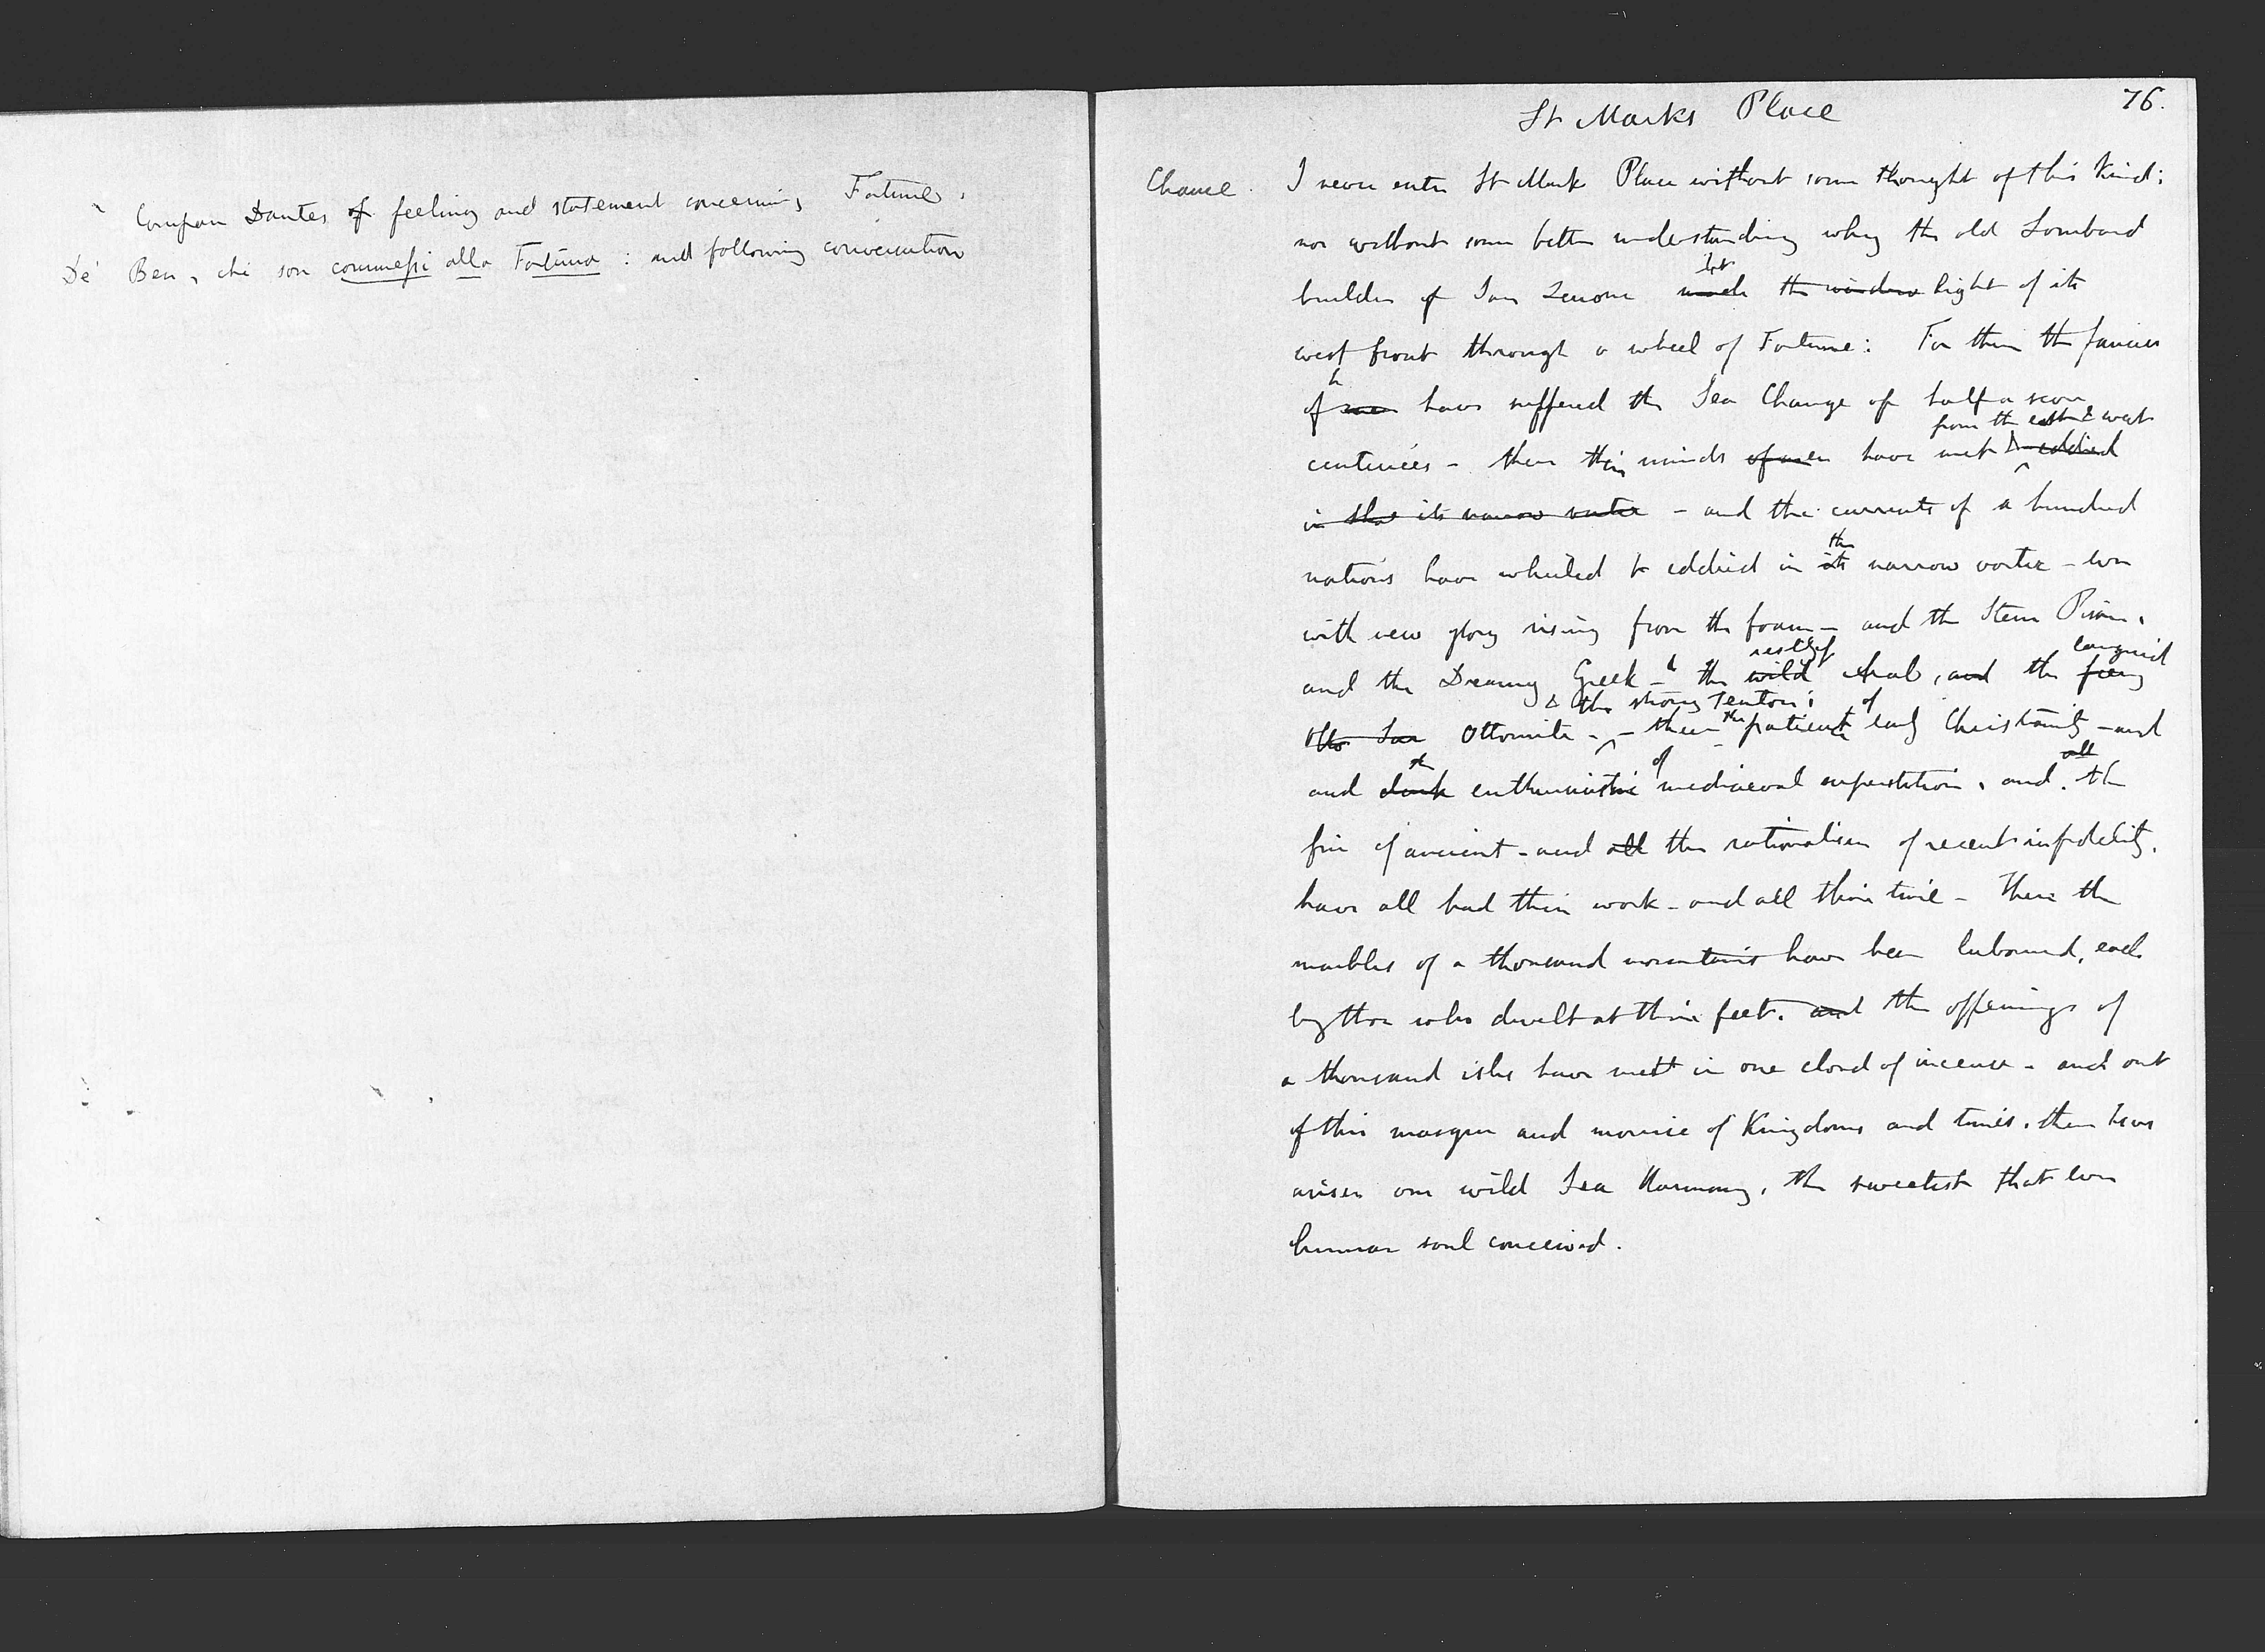 Compare Dantes of feeling and statement concerning Fortune,
De' Ben, chi son commessi alla Fortuna : and following conversation
76.
St Marks Place
Chance. I never enter St Mark Place without some thought of this kind:
nor without some better understanding why the old Lombard
let
builder of San Zenone made the window light of its
west front through a wheel of Fortune: For there the fancies
of men have suffered the Sea Change of half a score
from the east & west
centuries - there their minds of men have met & eddied
in that its narrow vortex - and the currents of a hundred
the
nations have wheeled & eddied in its narrow vortex - ever
with new glory rising from the foam - and the Stern Pisan,
restless languid
and the Dreamy Greek - & the wild Arab, and the fiery
& the strong Teuton: of
Otto Ottomite - there the patient early Christianity - and
the of all
and dark enthusiastic mediaeval superstition, and the
fire of ancient - and all the rationalism of recent infidelity,
have all had their work - and all their time - There the
marbles of a thousand mountains have been laboured, each
by those who dwelt at their feet. and the offerings of
a thousand isles have met in one cloud of incense - and out
of this masque and morrice of Kingdoms and times, there has
arisen one wild Sea Harmony, the sweetest that ever
human soul conceived.